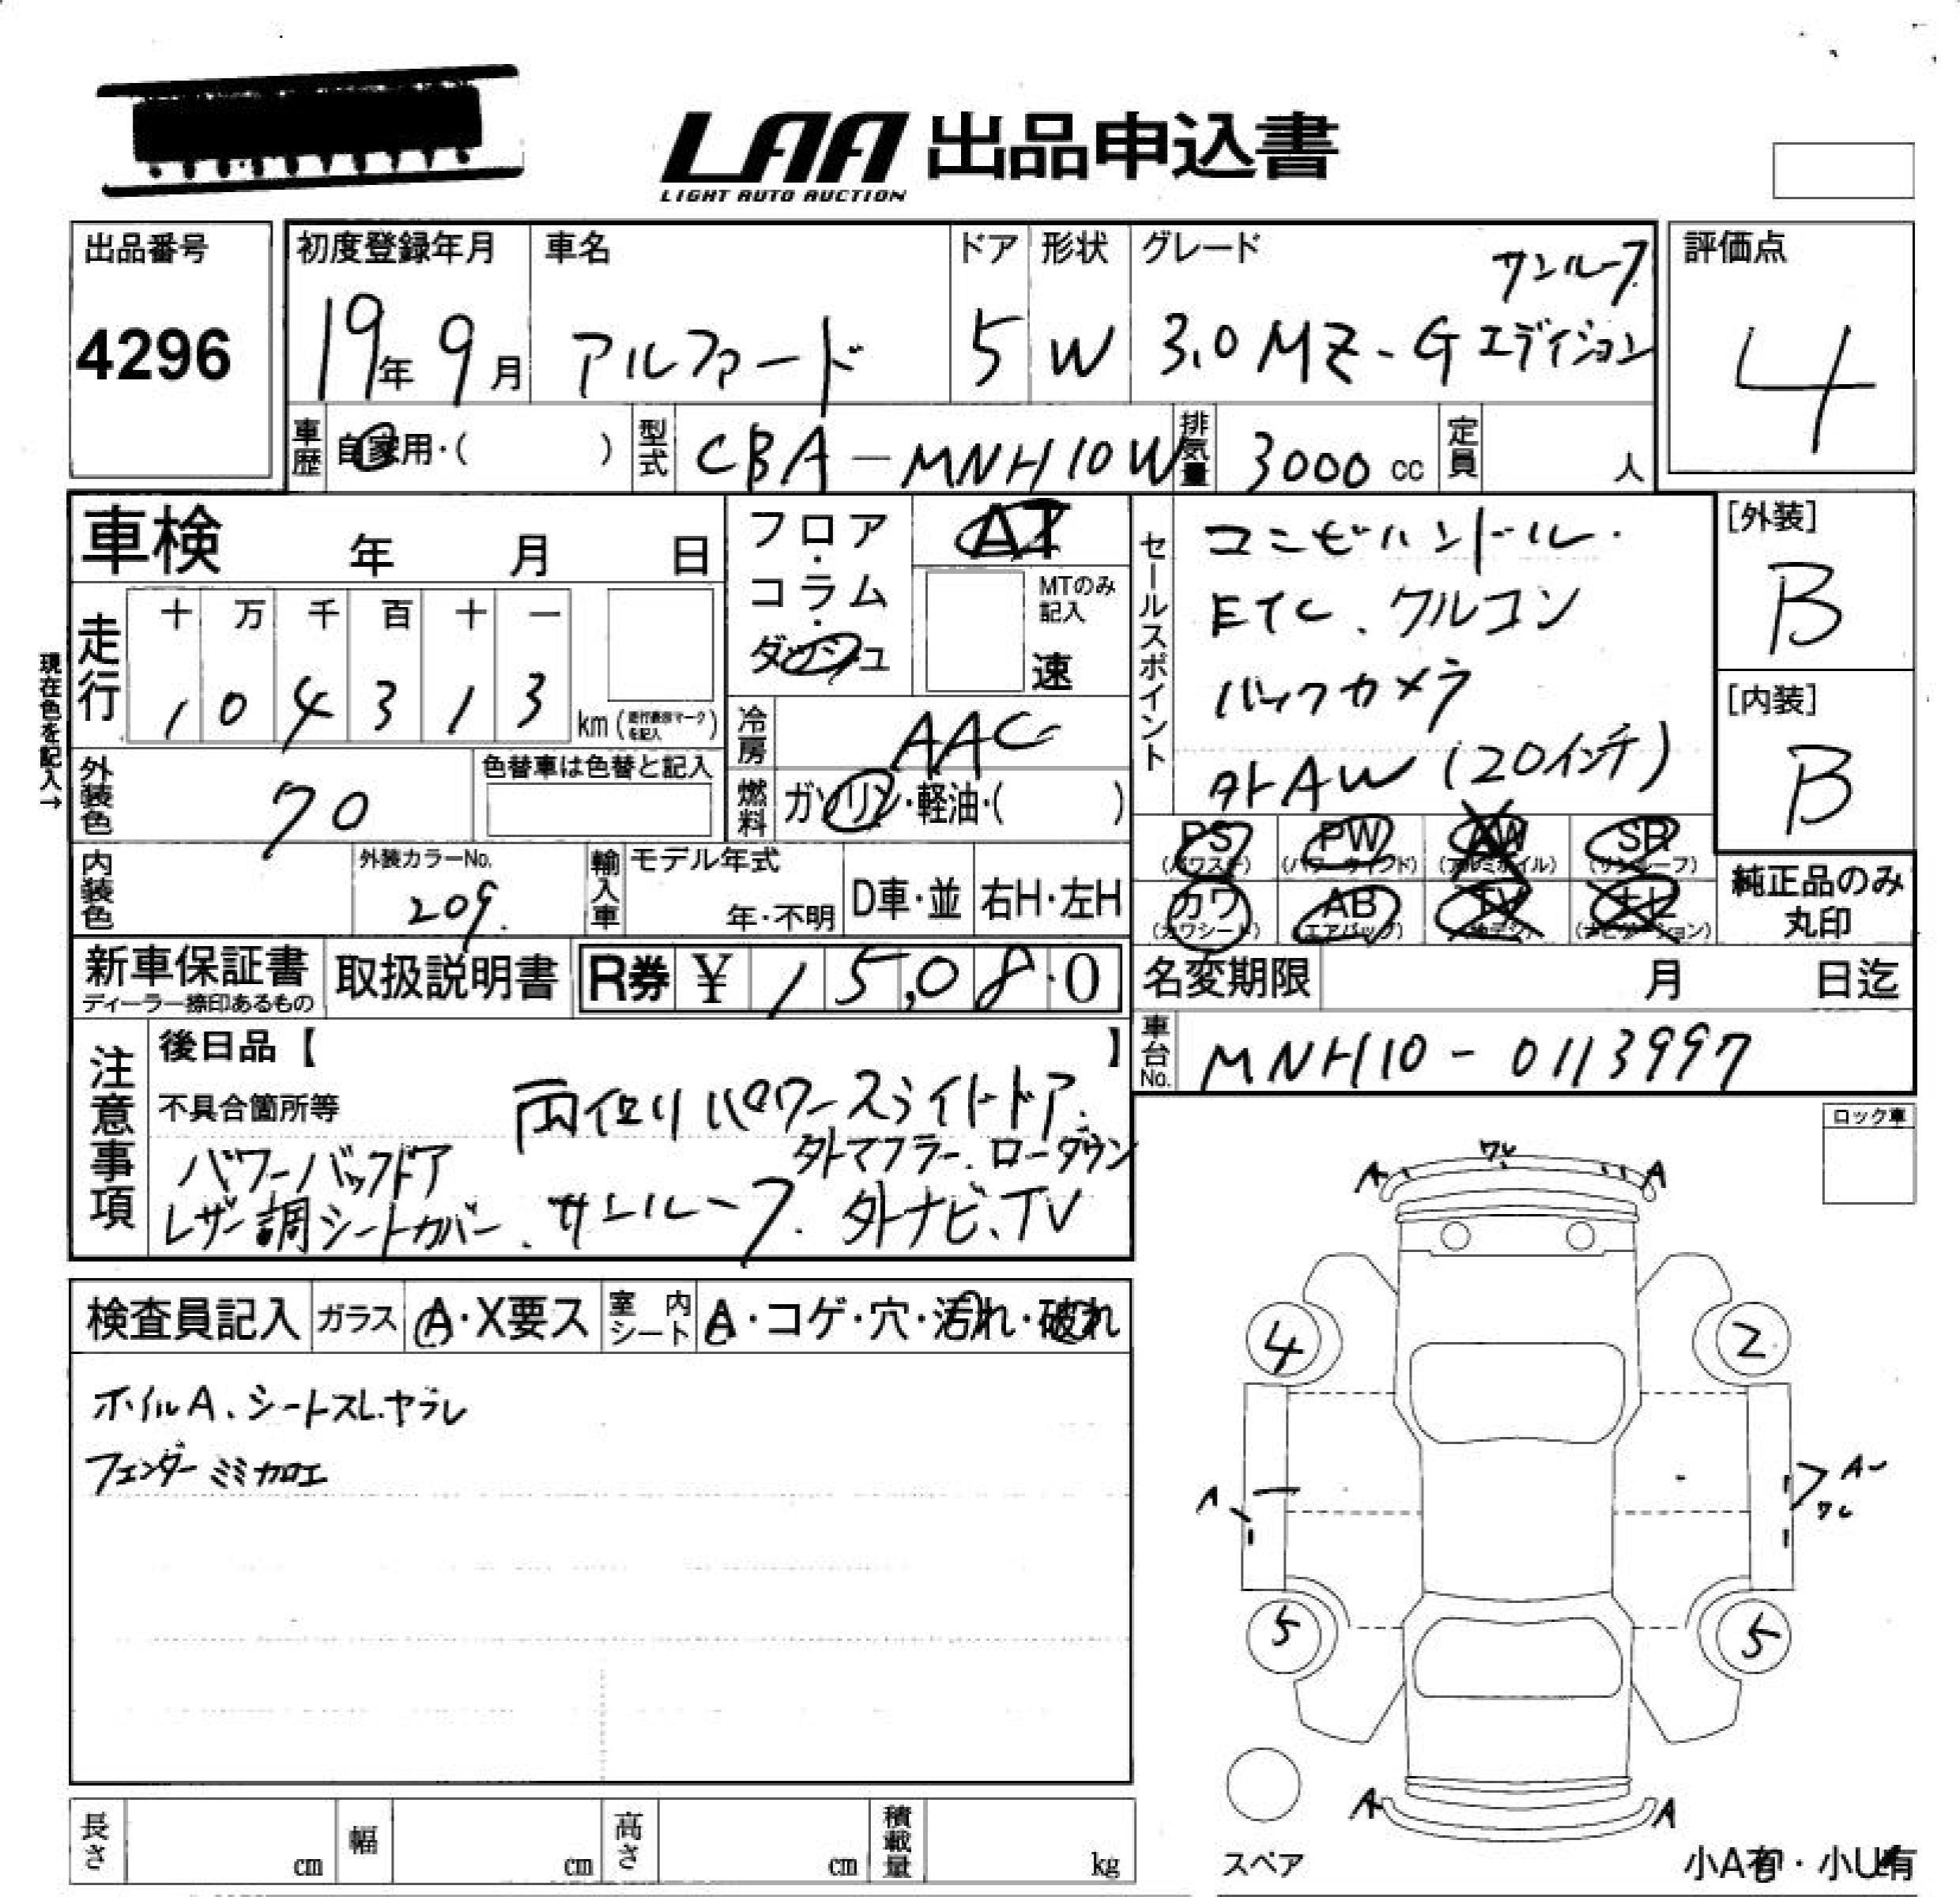 LAA 出品申込書
LIGHT AUTO AUCTION
出品番号
4296
初度登録年月
19年 9月
車名
アルファード
ドア
5
形状
W
グレード
サンルーフ
3.0 MZ-G エディション
評価点
4
車歴
自家用・( )
型式
CBA-MNH10W
排気量
3000 cc
定員
人
車検 年 月 日
フロア・コラム・ダッシュ
AT
MTのみ記入
速
走行
十 万 千 百 十 一
1 0 4 3 1 3 km
現在色を記入→
冷房
AAC
燃料
ガソリン・軽油・( )
外装色
70
色替車は色替と記入
内装色
外装カラーNo.
209.
輸入車
モデル年式
年・不明
D車・並
右H・左H
セールスポイント
コンビハンドル・
ETC、クルコン
バックカメラ
外AW (20インチ)
PS (パワステ) PW (パワーウインド) AW (アルミホイル) SR (サンルーフ)
カワ (カワシート) AB (エアバック) TV ナビ (ナビゲーション)
[外装]
B
[内装]
B
純正品のみ丸印
新車保証書
ディーラー捺印あるもの
取扱説明書
R券 ¥ 15,080
名変期限 月 日迄
車台No.
MNH10-0113997
注意事項
後日品【 】
不具合箇所等
両側パワースライドドア.
パワーバックドア 外マフラー、ローダウン
レザー調シートカバー、サンルーフ、外ナビ、TV
ロック車
検査員記入
ガラス A・X要ス
室内シート A・コゲ・穴・汚れ・破れ
ホイルA、シートスレ.ヤブレ
フェンダーミミカロエ
A ワレ A
4 2
A A ワレ
5 5
A A
スペア
小A有・小U有
長さ cm
幅 cm
高さ cm
積載量 kg